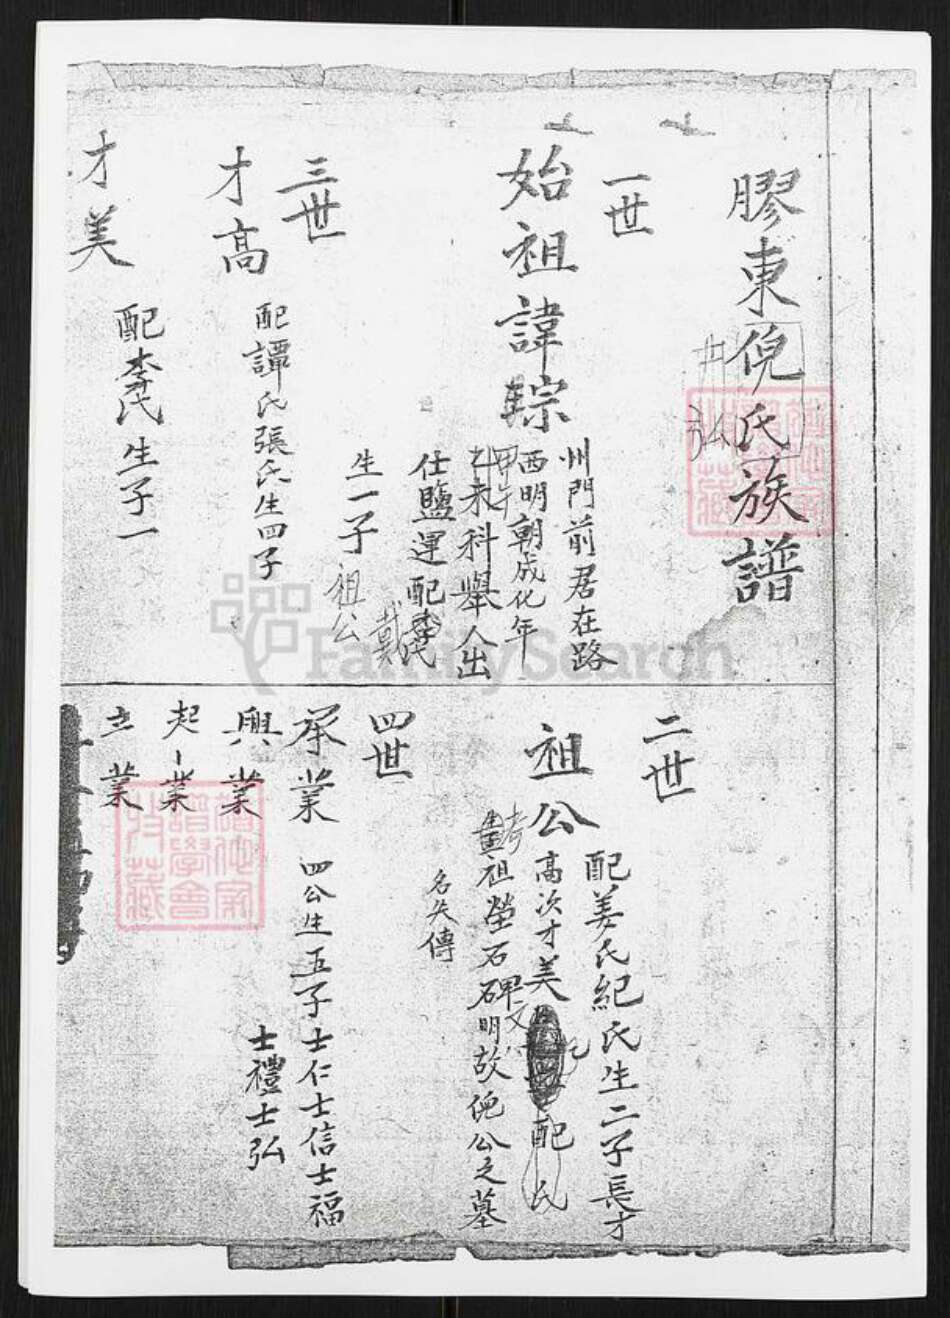 膠東倪氏族譜
一世
始祖諱
州門前居在路
西明朝成化年
甲午
乙未科舉人出
仕鹽運配李氏
戴
生一子
祖公
三世
才高
配譚氏張氏生四子
才美
配李氏生子一
二世
祖公
配姜氏紀氏生二子長才
高次才美
配 氏
考
祖塋石碑明故倪公之墓
碑文
名失傳
四世
承業
四公生五子士仁士信士福
士禮士弘
興業
起業
立業
FamilySearch